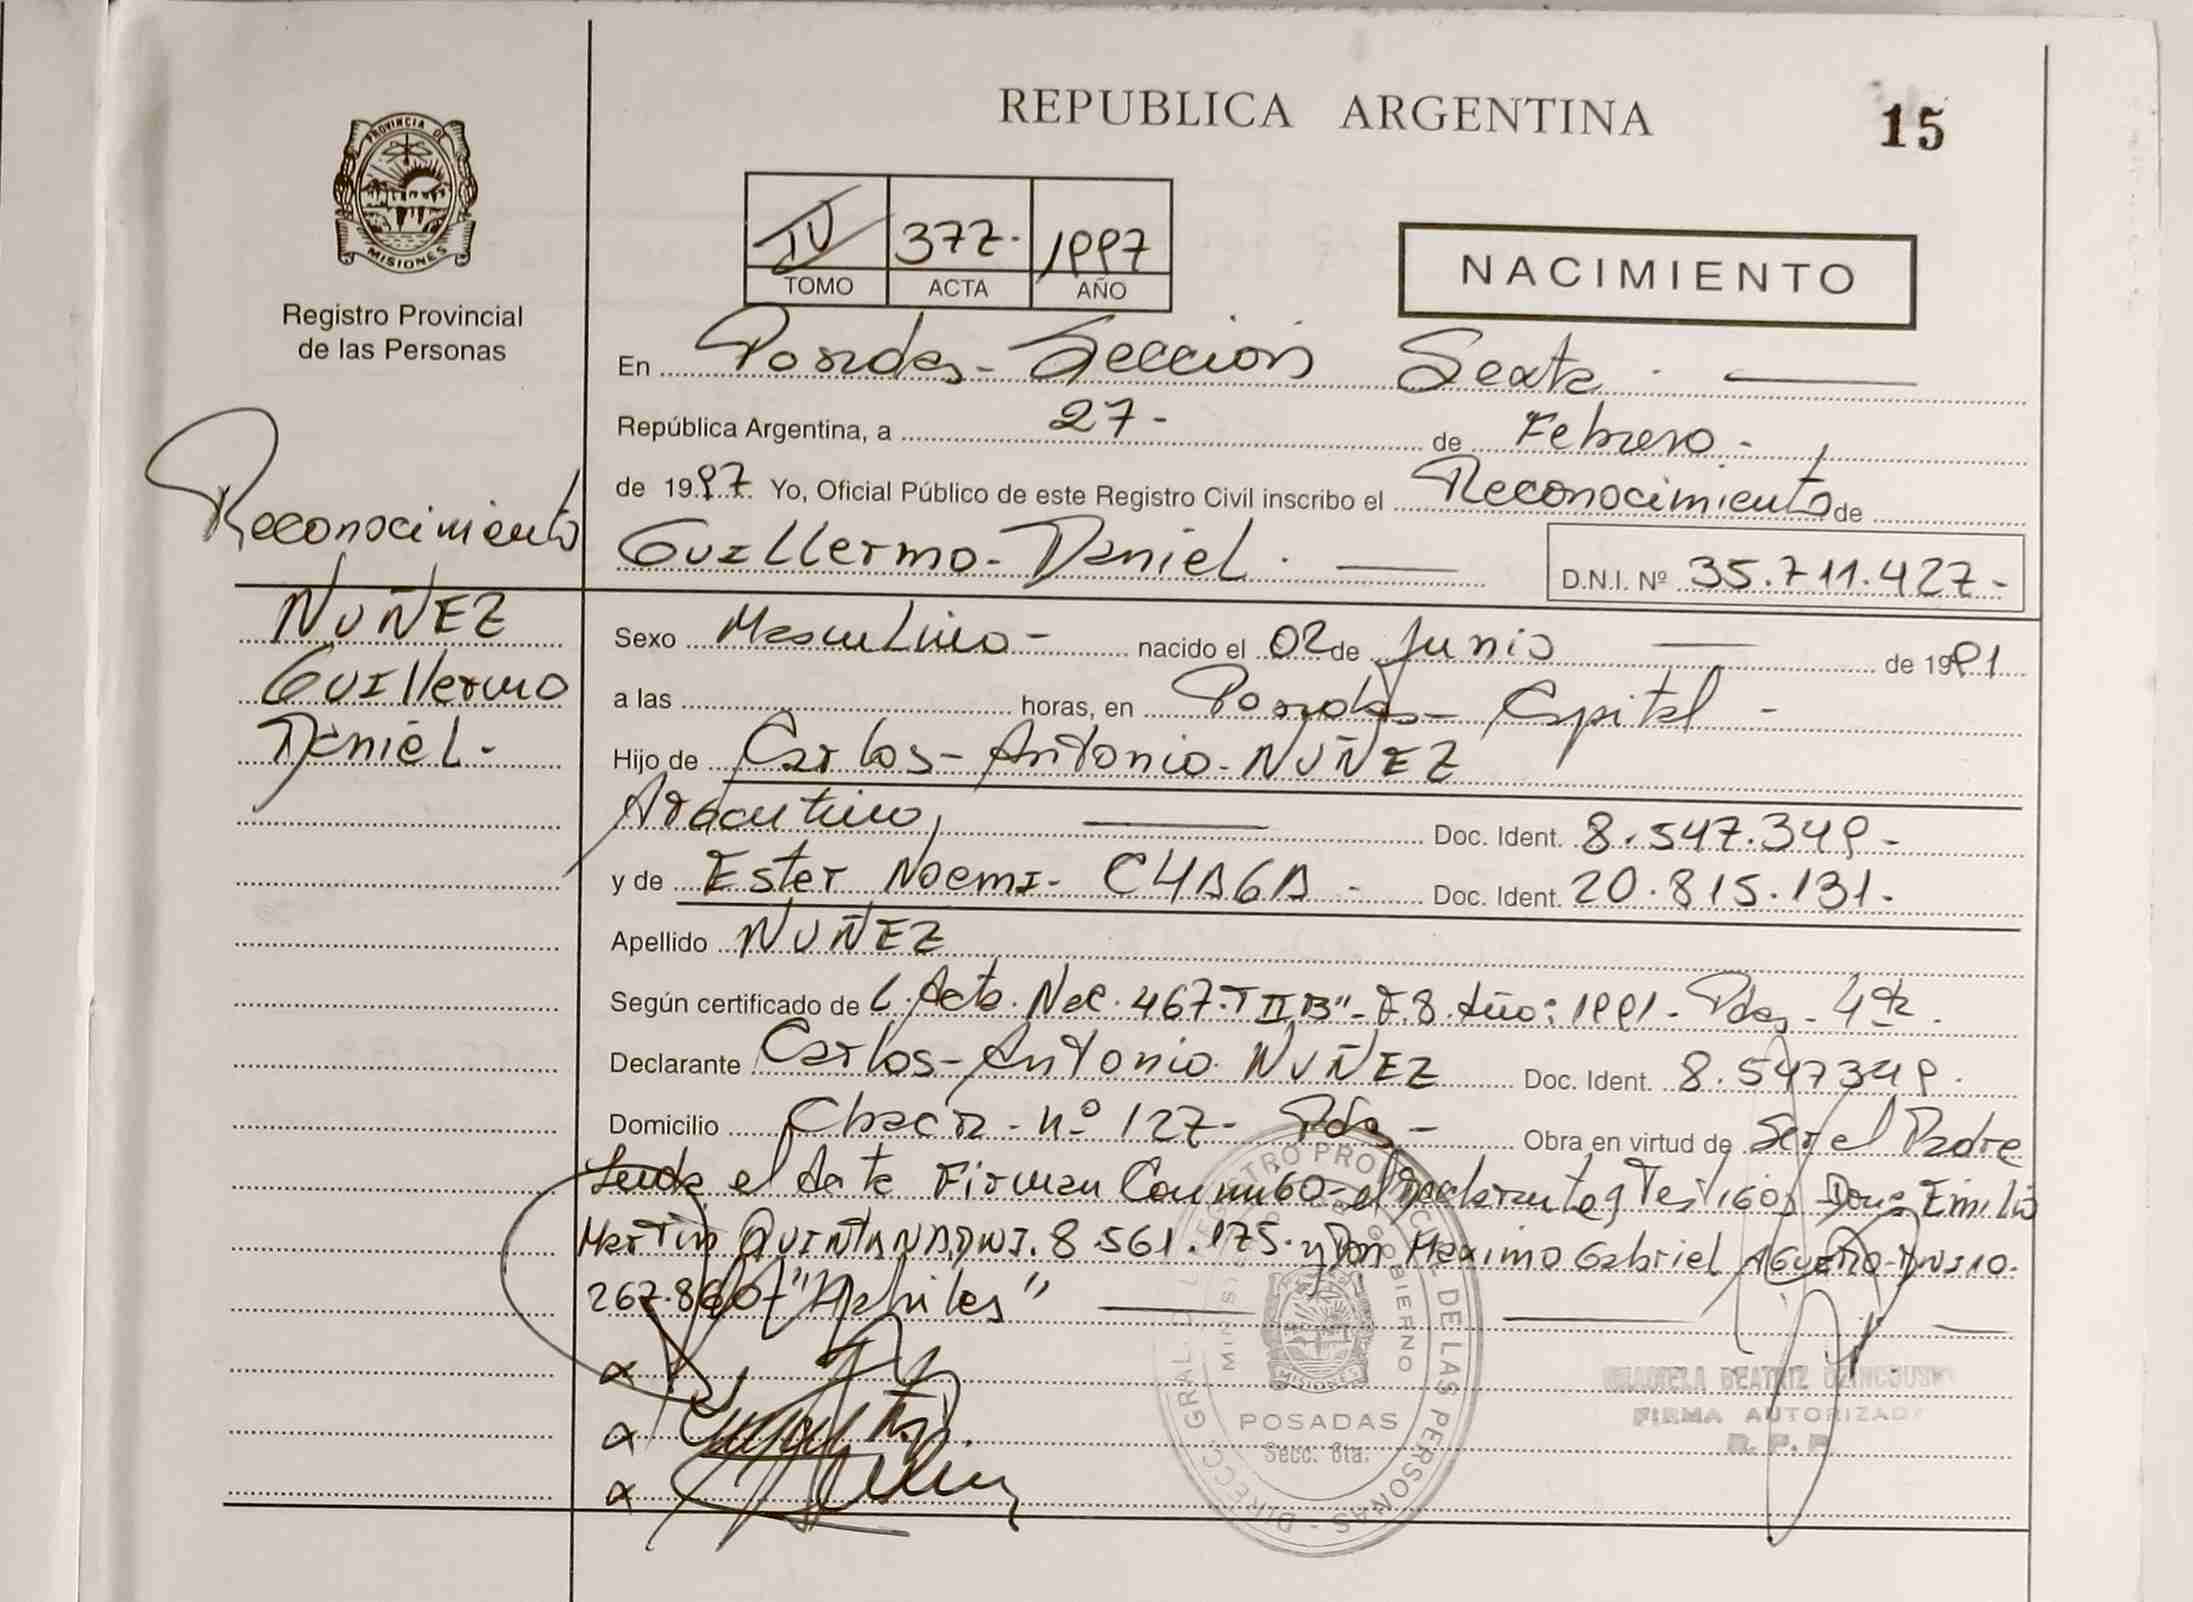 REPUBLICA ARGENTINA
15
PROVINCIA DE
MISIONES
Registro Provincial
de las Personas
IV 377. 1997
TOMO ACTA AÑO
NACIMIENTO
En Posadas - Sección Sexta . —
República Argentina, a 27- de Febrero.-
de 1997. Yo, Oficial Público de este Registro Civil inscribo el Reconocimiento de
Guillermo - Daniel . — D.N.I. Nº 35.711.427-
Reconocimiento
NUÑEZ
Guillermo
Daniel -
Sexo Masculino - nacido el 02 de Junio — de 1991
a las horas, en Posadas - Capital -
Hijo de Carlos - Antonio - NUÑEZ
Argentino, — Doc. Ident. 8.547.349-
y de Ester Noemi - CHAGA - Doc. Ident. 20.815.131-
Apellido NUÑEZ
Según certificado de C. Acta. Nac. 467. T II "B" - F.8. Año: 1991 - Pdas - 4ta.
Declarante Carlos - Antonio NUÑEZ Doc. Ident. 8.547349.
Domicilio Nº 127 - Pdas - Obra en virtud de Ser el Padre
el Acta Firman Conmigo - el Declarante y Testigos Emilio
Martin QUINTANA DNI. 8.561.175- y Don Maximo Gabriel AGUERO - DNI 10.
267.860 - "Habiles" —
DIRECC. GRAL. DEL REGISTRO PROVINCIAL DE LAS PERSONAS -
MINISTERIO DE GOBIERNO
POSADAS
Secc. 6ta.
BEATRIZ
FIRMA AUTORIZADA
R. P. P.